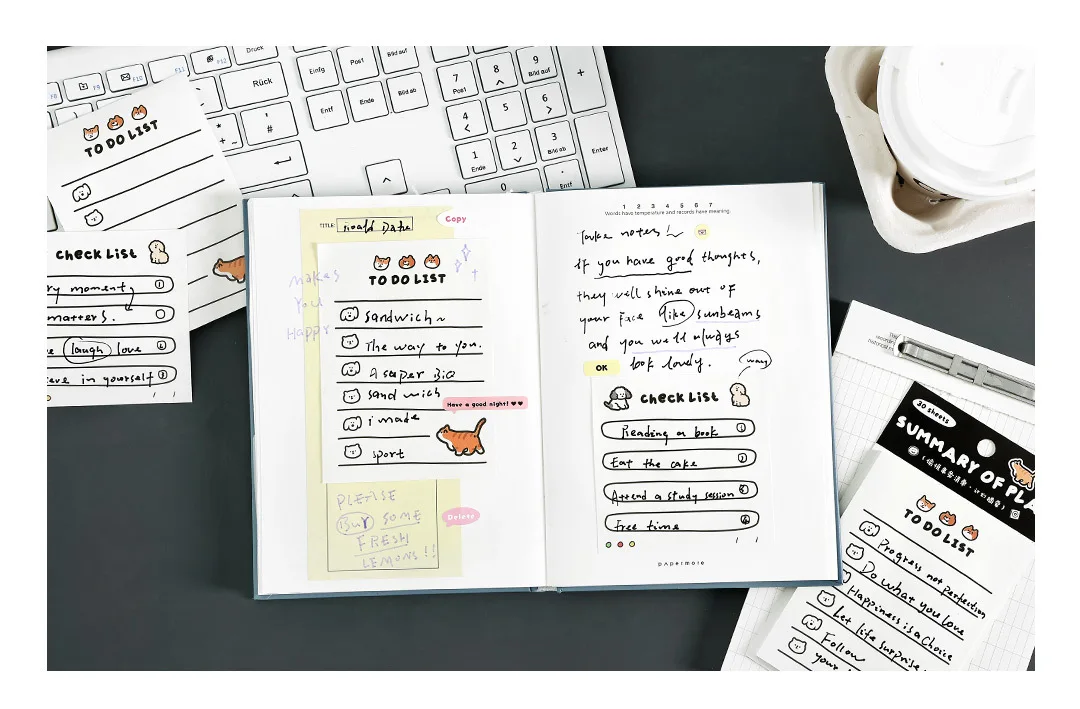 Druck
F8
F9
F10
F11
F12
Rück
Einfg
Post
Bild auf
Entf
Ende
Bild ab
7
Post
8
9
Bild auf
+
4
5
6
1
Ende
2
3
Bild ab
Enter
0
Entf
*
+
~
'
#
TO DO LIST
Check List
ry moment,
1
matters.
laugh love
eve in yourself
TITLE:
Copy
makes
You
Happy
TO DO LIST
sandwich~
The way to you.
a super BIG
sandwich
Have a good night! ♥♥
i made
sport
PLEASE
BUY SOME
FRESH
LEMONS!!
Delete
1 2 3 4 5 6 7
Words have temperature and records have meaning.
Take notes!
If you have good thoughts,
they will shine out of
your face like sunbeams
and you will always
look lovely.
OK
way
Check List
Reading a book
Eat the cake
Attend a study session
Free time
papermore
30 sheets
SUMMARY OF PLA
TO DO LIST
Progress not perfection
Do what you love
Happiness is a choice
Let life surprise
Follow
your